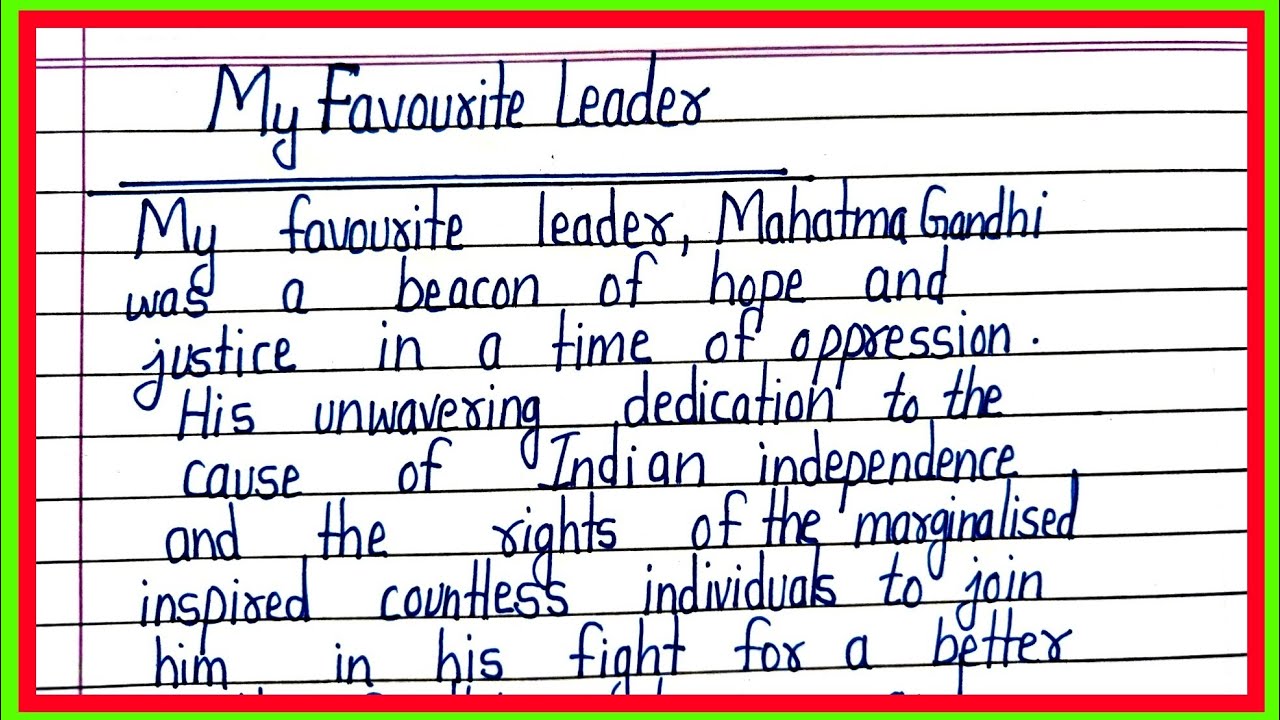 My Favourite Leader
My favourite leader, Mahatma Gandhi
was a beacon of hope and
justice in a time of oppression.
His unwavering dedication to the
cause of Indian independence
and the rights of the marginalised
inspired countless individuals to join
him in his fight for a better